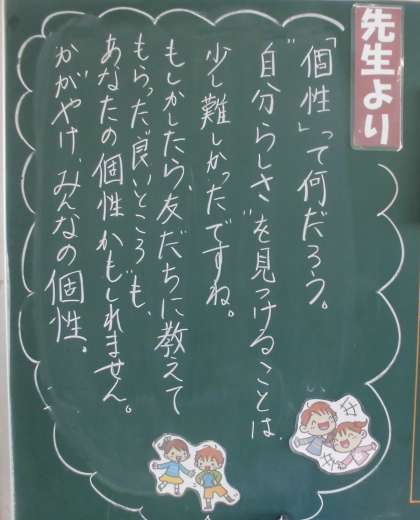 先生より
「個性」って何だろう。
"自分らしさ"を見つけることは
少し難しかったですね。
もしかしたら、友だちに教えて
もらった"良いところ"も、
あなたの個性かもしれません。
かがやけ、みんなの個性。